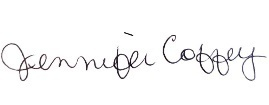 Jennifer Coffey